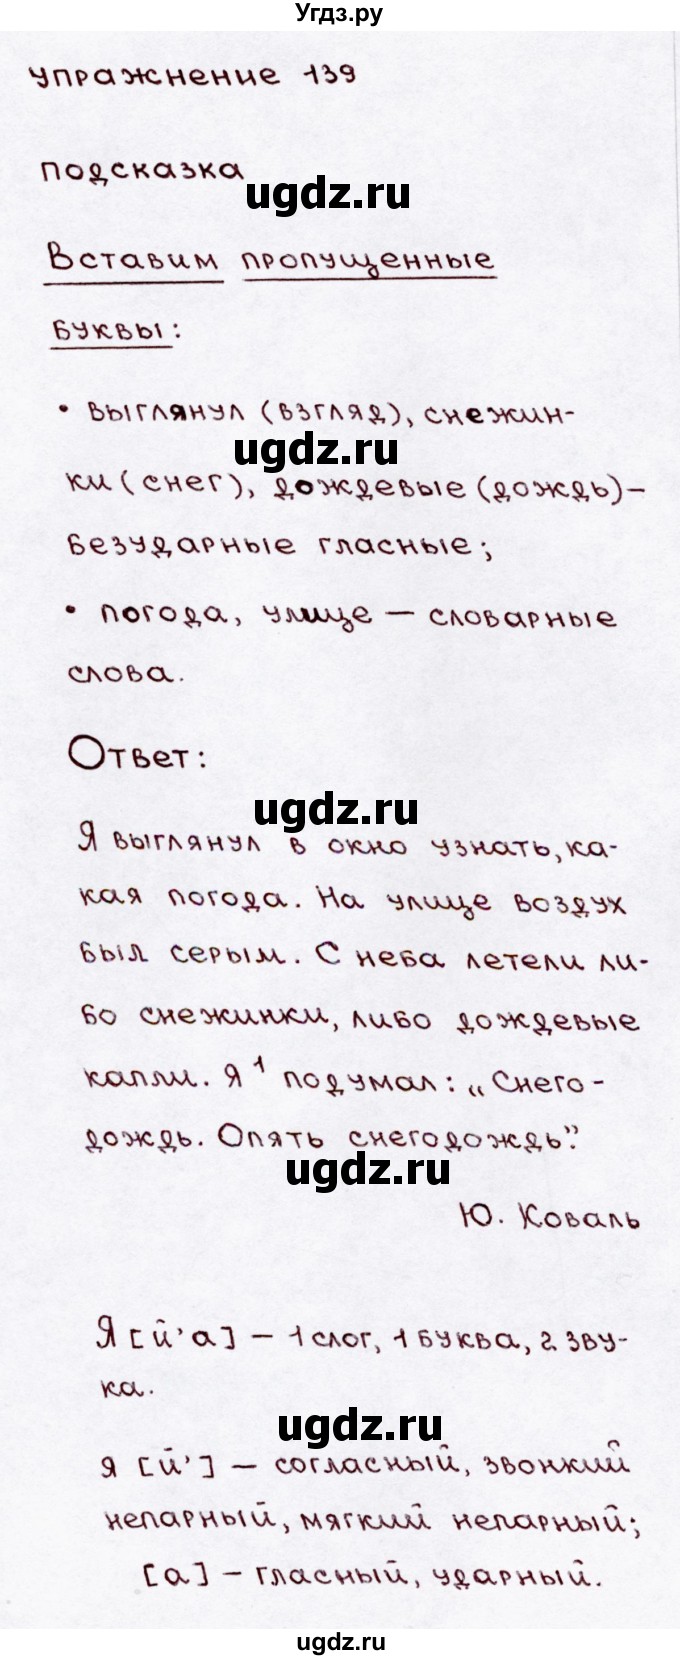 Угдз.ру
упражнение 139
подсказка
ugdz.ru
Вставим пропущенные
буквы:
• выглянул (взгляд), снежин-
ugdz.ru
ки (снег), дождевые (дождь) –
безударные гласные;
• погода, улице – словарные
слова.
Ответ:
ugdz.ru
Я выглянул в окно узнать, ка-
кая погода. На улице воздух
был серым. С неба летели ли-
бо снежинки, либо дождевые
капли. Я ¹ подумал: „Снего-
дождь. Опять снегодождь".
ugdz.ru
Ю. Коваль
Я [й'а] – 1 слог, 1 буква, 2 зву-
ка.
ugdz.ru
я [й'] – согласный, звонкий
непарный, мягкий непарный;
[а] – гласный, ударный.
ugdz.ru